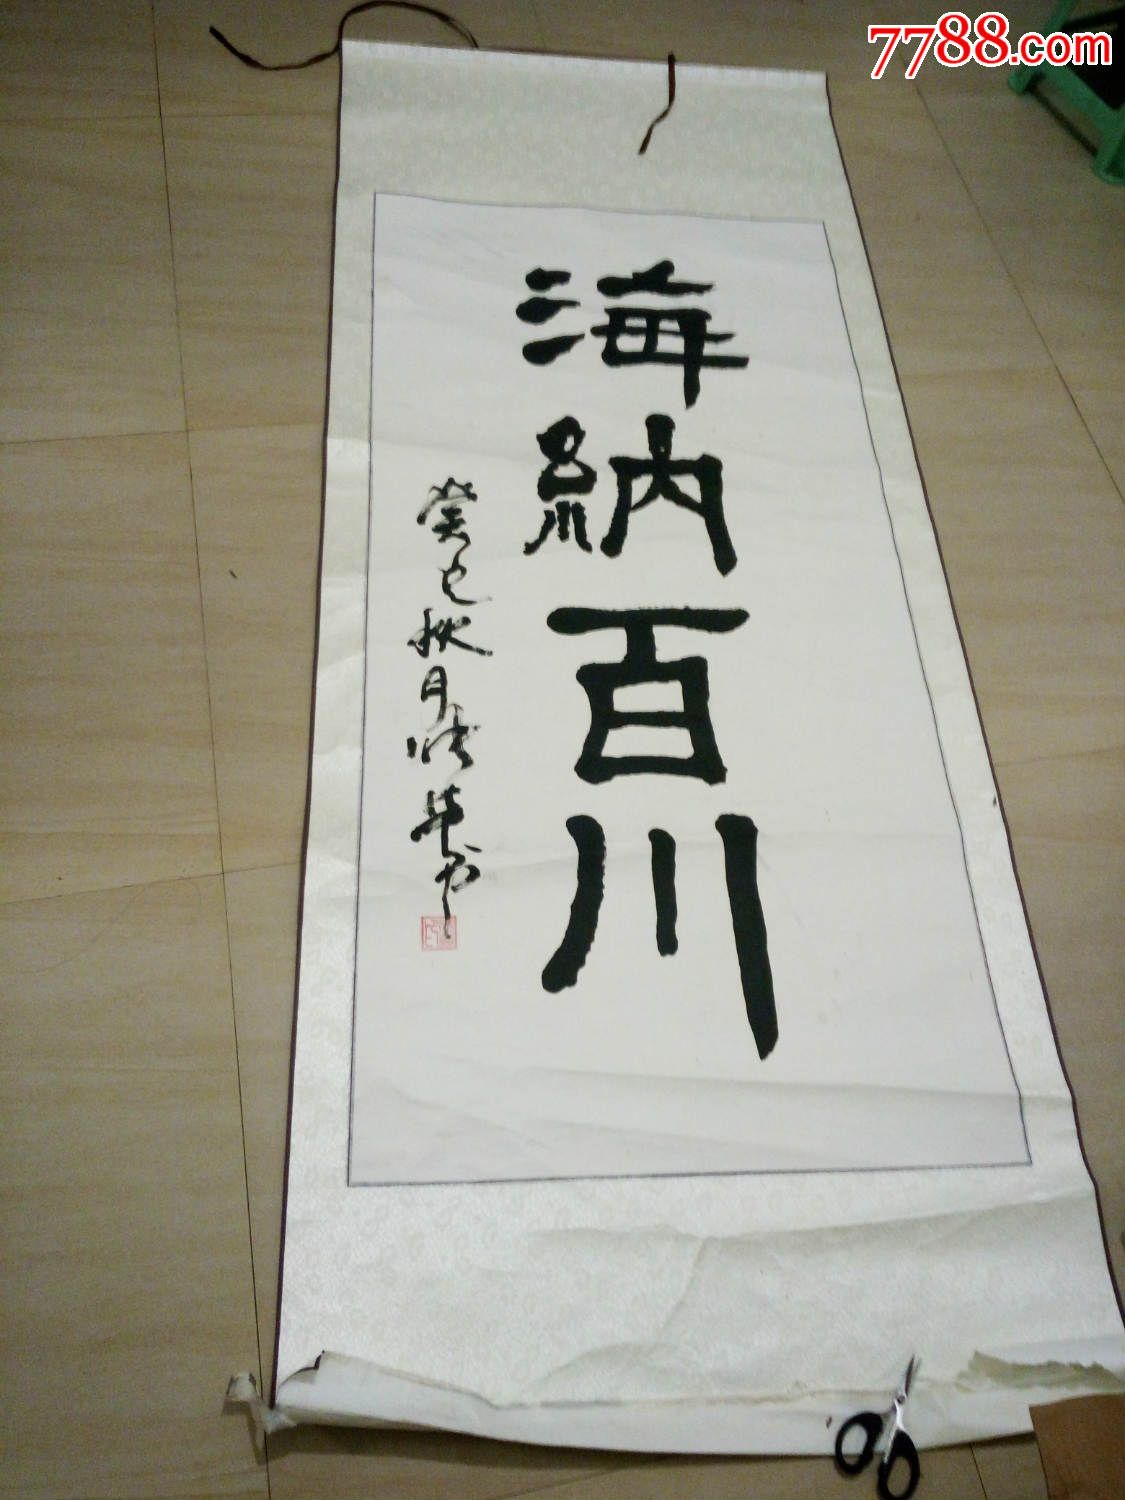 7788.com
海納百川
癸巳秋月